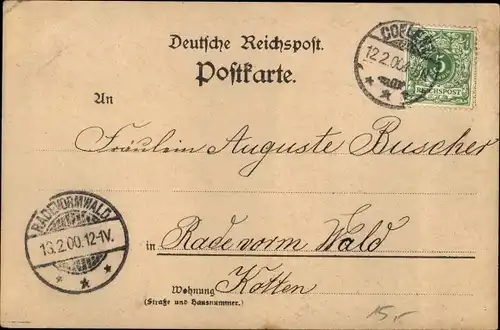 Deutsche Reichspost.
Postkarte.
COBLENZ
12.2.00.
5
REICHSPOST
An
Fräulein Auguste Buscher
RADEVORMWALD
13.2.00.12-1V.
in Radevorm Wald
Wohnung Kotten
(Straße und Hausnummer.)
15,-